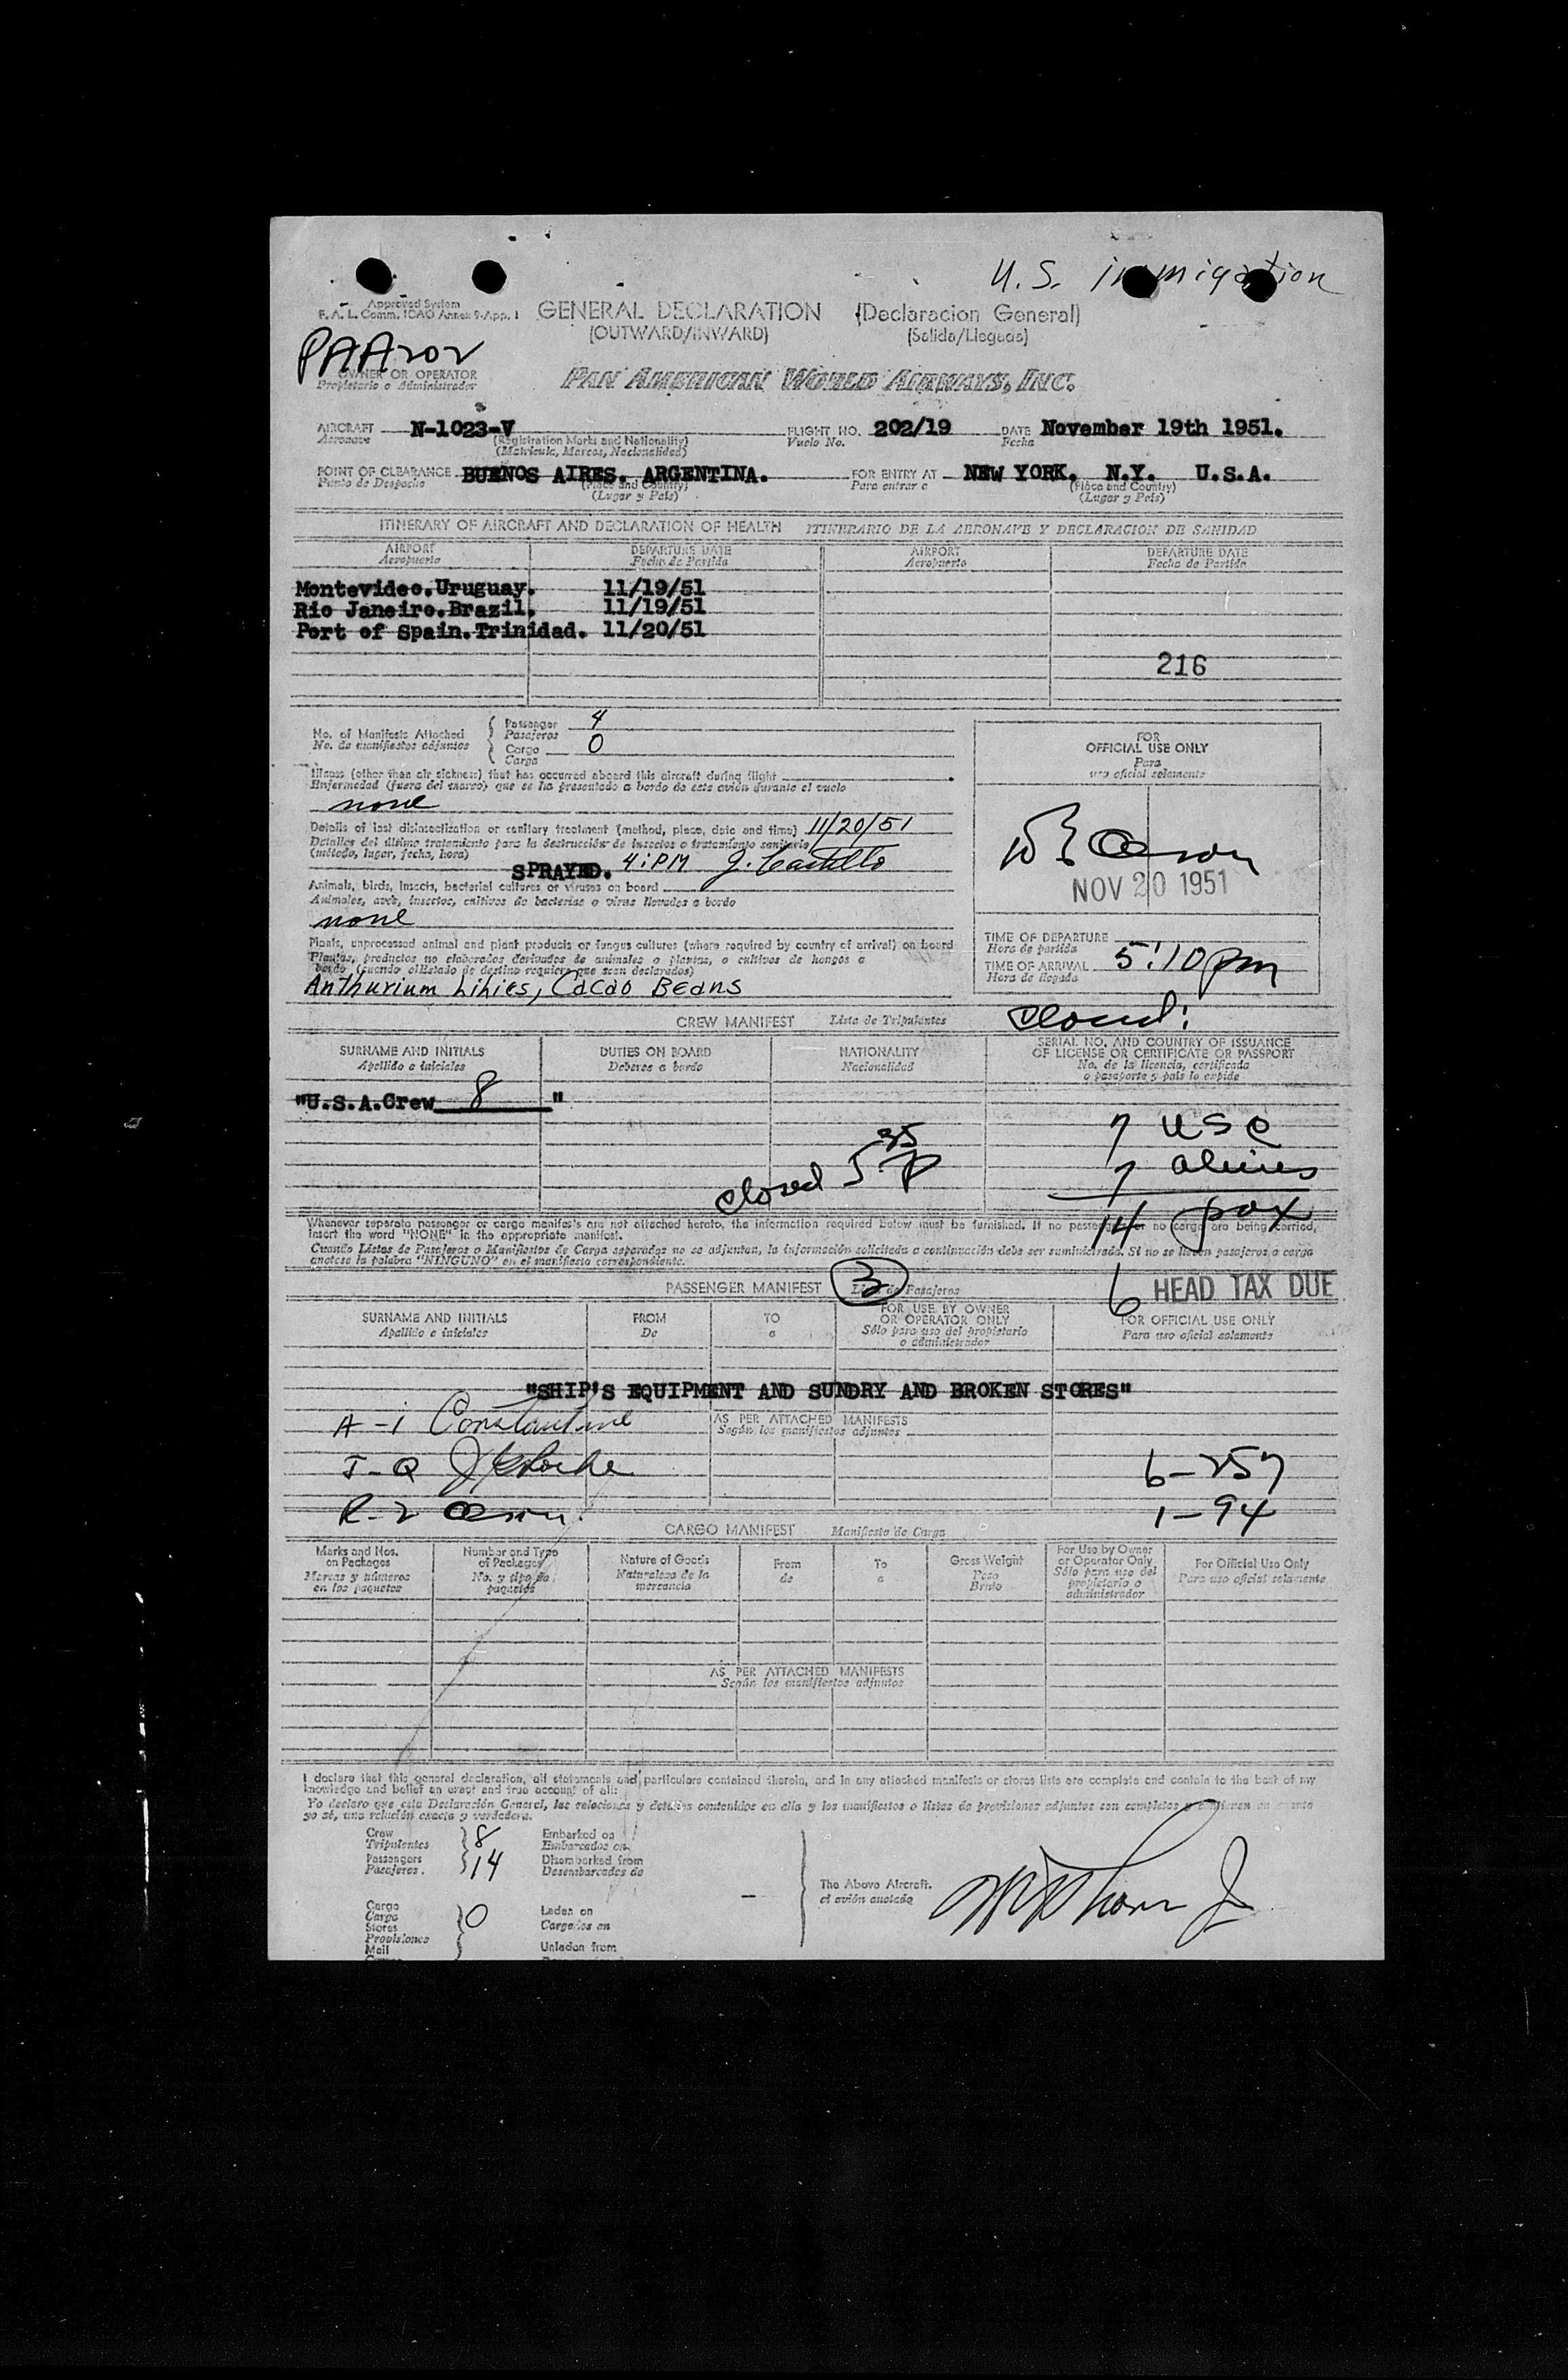 U.S. immigration
Approved System
F. A. L. Comm. ICAO Annex 9-App. 1
GENERAL DECLARATION (Declaracion General)
(OUTWARD/INWARD) (Salida/Llegada)
PAA 202
OWNER OR OPERATOR
Propietario o Administrador
PAN AMERICAN WORLD AIRWAYS, INC.
AIRCRAFT N-1023-V FLIGHT NO. 202/19 DATE November 19th 1951.
Aeronave (Registration Marks and Nationality) Vuelo No. Fecha
(Matricula, Marcas, Nacionalidad)
POINT OF CLEARANCE BUENOS AIRES. ARGENTINA. FOR ENTRY AT NEW YORK, N.Y. U.S.A.
Punto de Despacho (Place and Country) Para entrar a (Place and Country)
(Lugar y Pais) (Lugar y Pais)
ITINERARY OF AIRCRAFT AND DECLARATION OF HEALTH ITINERARIO DE LA AERONAVE Y DECLARACION DE SANIDAD
AIRPORT DEPARTURE DATE AIRPORT DEPARTURE DATE
Aeropuerto Fecha de Partida Aeropuerto Fecha de Partida
Montevideo.Uruguay. 11/19/51
Rio Janeiro.Brazil. 11/19/51
Port of Spain.Trinidad. 11/20/51
216
No. of Manifests Attached
No. de manifiestos adjuntos
Passenger 4
Pasajeros
Cargo 0
Carga
FOR
OFFICIAL USE ONLY
Para
uso oficial solamente
Illness (other than air sickness) that has occurred aboard this aircraft during flight
Enfermedad (fuera del mareo) que se ha presentado a bordo de este avión durante el vuelo
none
Details of last disinsectization or sanitary treatment (method, place, date and time) 11/20/51
Detalles del último tratamiento para la destrucción de insectos o tratamiento sanitario
(método, lugar, fecha, hora)
SPRAYED. 4:PM J. Castillo
NOV 20 1951
Animals, birds, insects, bacterial cultures or viruses on board
Animales, aves, insectos, cultivos de bacterias o virus llevados a bordo
none
Plants, unprocessed animal and plant products or fungus cultures (where required by country of arrival) on board
Plantas, productos no elaborados derivados de animales o plantas, o cultivos de hongos a
bordo (cuando el Estado de destino requiere que sean declarados)
Anthurium Lihies, Cacao Beans
TIME OF DEPARTURE
Hora de partida
TIME OF ARRIVAL 5:10 pm
Hora de llegada
closed:
CREW MANIFEST Lista de Tripulantes
SURNAME AND INITIALS DUTIES ON BOARD NATIONALITY SERIAL NO. AND COUNTRY OF ISSUANCE
OF LICENSE OR CERTIFICATE OR PASSPORT
Apellido e iniciales Deberes a bordo Nacionalidad No. de la licencia, certificado
o pasaporte y pais lo expide
"U.S.A.Crew 8 "
7 USC
7 aliens
closed 5:35 P
14 pax
Whenever separate passenger or cargo manifests are not attached hereto, the information required below must be furnished. If no passengers or no cargo are being carried,
insert the word "NONE" in the appropriate manifest.
Cuando Listas de Pasajeros o Manifiestos de Carga separados no se adjuntan, la información solicitada a continuación debe ser suministrada. Si no se llevan pasajeros o carga
anotese la palabra "NINGUNO" en el manifiesto correspondiente.
PASSENGER MANIFEST 3 Lista de Pasajeros
6 HEAD TAX DUE
SURNAME AND INITIALS FROM TO FOR USE BY OWNER
OR OPERATOR ONLY FOR OFFICIAL USE ONLY
Apellido e iniciales De a Sólo para uso del propietario
o administrador Para uso oficial solamente
"SHIP'S EQUIPMENT AND SUNDRY AND BROKEN STORES"
A-i Constantine
AS PER ATTACHED MANIFESTS
Según los manifiestos adjuntos
J-Q
6-257
R-Z
1-94
CARGO MANIFEST Manifiesto de Carga
Marks and Nos.
on Packages
Marcas y números
en los paquetes
Number and Type
of Packages
No. y tipo de
paquetes
Nature of Goods
Naturaleza de la
mercancia
From
de
To
a
Gross Weight
Peso
Bruto
For Use by Owner
or Operator Only
Sólo para uso del
propietario o
administrador
For Official Use Only
Para uso oficial solamente
AS PER ATTACHED MANIFESTS
Según los manifiestos adjuntos
I declare that this general declaration, all statements and particulars contained therein, and in any attached manifests or stores lists are complete and contain to the best of my
knowledge and belief an exact and true account of all:
Yo declaro que esta Declaración General, las relaciones y detalles contenidos en ella y los manifiestos o listas de provisiones adjuntos son completos y contienen en cuanto
yo sé, una relación exacta y verdadera.
Crew 8 Embarked on
Tripulantes Embarcados en
Passengers 14 Disembarked from
Pasajeros. Desembarcados de
The Above Aircraft.
el avión anotado
Cargo
Carga 0 Laden on
Stores Cargados en
Provisiones
Mail Unladen from